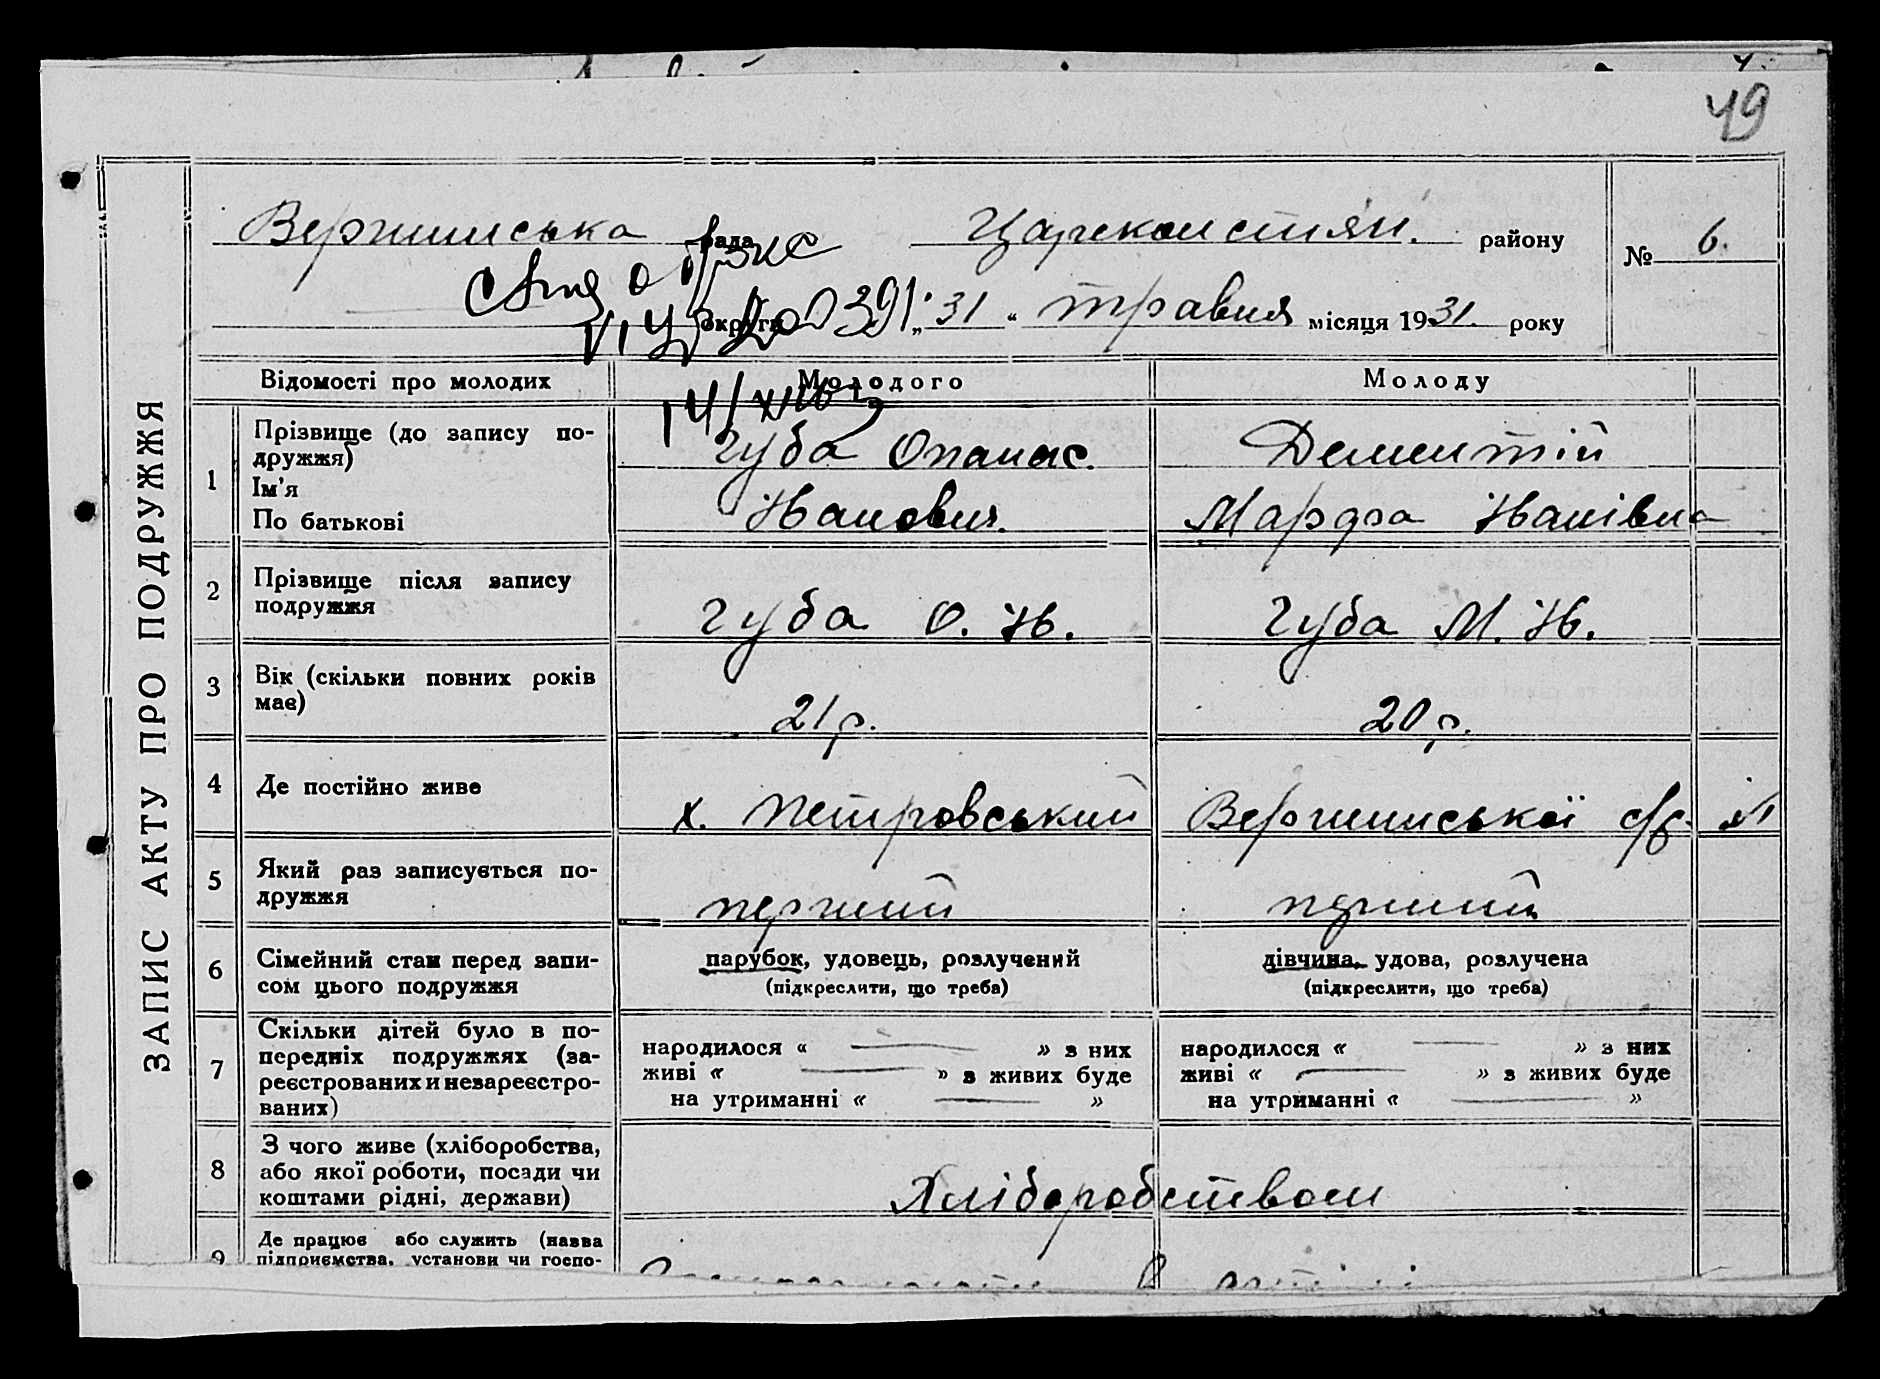 49
ЗАПИС АКТУ ПРО ПОДРУЖЖЯ
рада Царекон району
№ 6.
округи „31“ травня місяця 1931. року
14/XII
Відомості про молодих Молодого Молоду
1 Прізвище (до запису по-
дружжя)
Ім'я
По батькові
Губа Опанас.
Іванович.
Дементій
Марфа Іванівна
2 Прізвище після запису
подружжя
Губа О. Ів. Губа М. Ів.
3 Вік (скільки повних років
має)
21 р. 20 р.
4 Де постійно живе х. Петровський с/р
5 Який раз записується по-
дружжя
перший перший
6 Сімейний стан перед запи-
сом цього подружжя
парубок, удовець, розлучений
(підкреслити, що треба)
дівчина, удова, розлучена
(підкреслити, що треба)
7 Скільки дітей було в по-
передніх подружжях (за-
реєстрованих и незареєстро-
ваних)
народилося « — » з них
живі « — » з живих буде
на утриманні « — »
народилося « — » з них
живі « — » з живих буде
на утриманні « — »
8 З чого живе (хліборобства,
або якої роботи, посади чи
коштами рідні, держави)
Хліборобством
9 Де працює або служить (назва
підприємства, установи чи госпо-